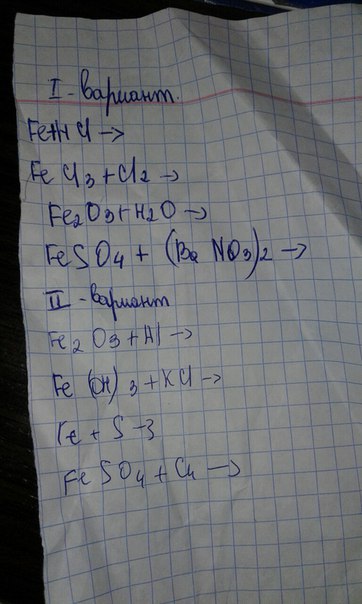 I - вариант.
Fe+HCl →
FeCl3 + Cl2 →
Fe2O3 + H2O →
FeSO4 + (Ba NO3)2 →
II - вариант
Fe2O3 + Al →
Fe(OH)3 + KCl →
Fe + S →
FeSO4 + Cu →